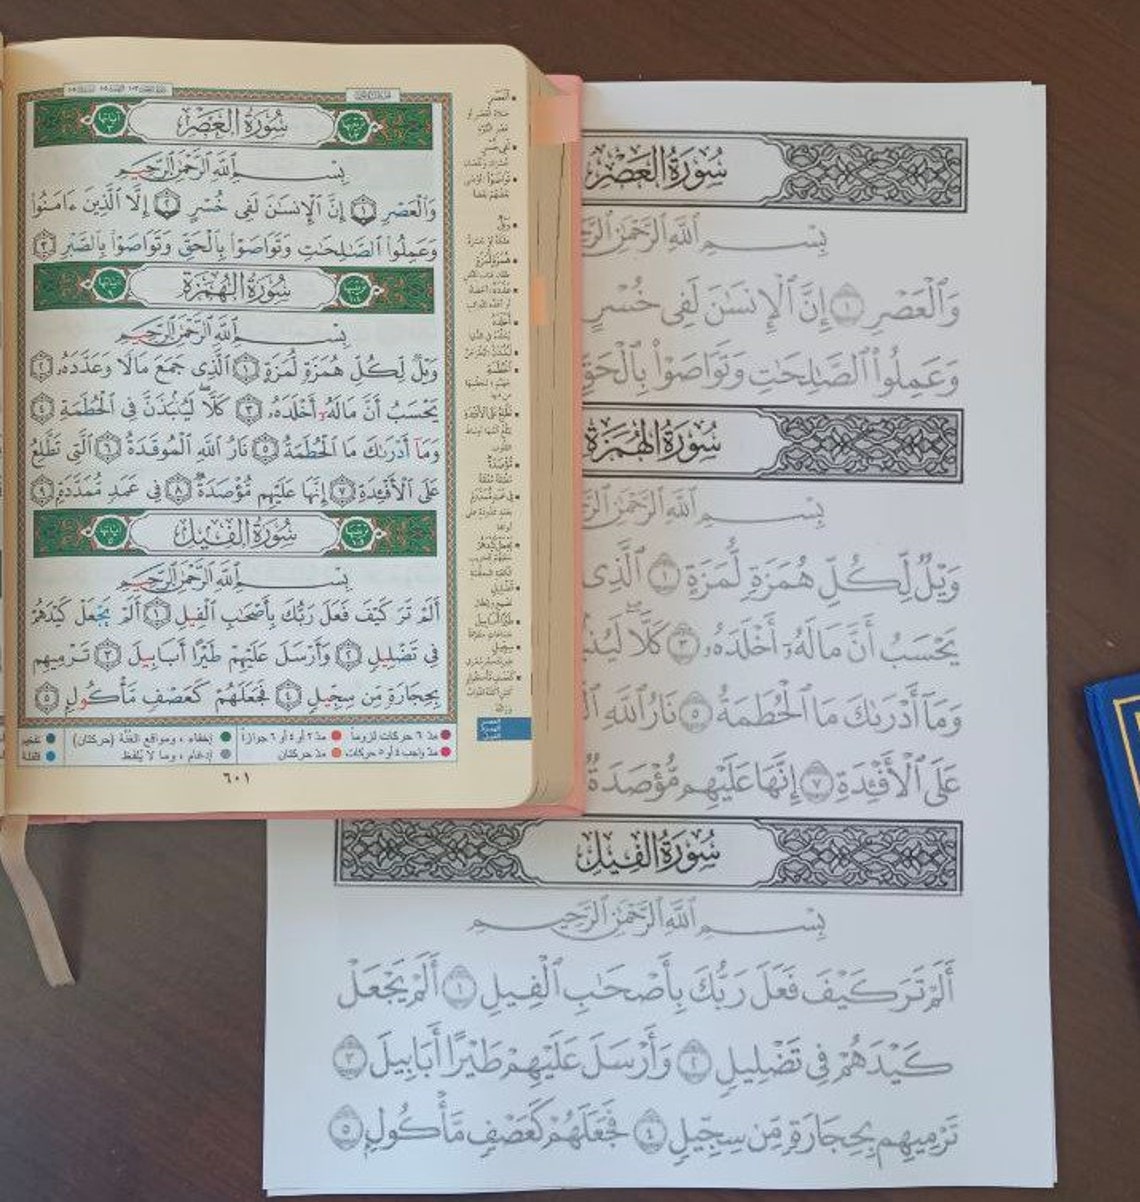 سُورَةُ العَصْرِ
بِسْمِ ٱللَّهِ ٱلرَّحْمَٰنِ ٱلرَّحِيمِ
وَٱلْعَصْرِ ١ إِنَّ ٱلْإِنسَٰنَ لَفِى خُسْرٍ ٢ إِلَّا ٱلَّذِينَ ءَامَنُوا۟
وَعَمِلُوا۟ ٱلصَّٰلِحَٰتِ وَتَوَاصَوْا۟ بِٱلْحَقِّ وَتَوَاصَوْا۟ بِٱلصَّبْرِ ٣
سُورَةُ الهُمَزَةِ
بِسْمِ ٱللَّهِ ٱلرَّحْمَٰنِ ٱلرَّحِيمِ
وَيْلٌ لِّكُلِّ هُمَزَةٍ لُّمَزَةٍ ١ ٱلَّذِى جَمَعَ مَالًا وَعَدَّدَهُۥ ٢
يَحْسَبُ أَنَّ مَالَهُۥٓ أَخْلَدَهُۥ ٣ كَلَّا ۖ لَيُنۢبَذَنَّ فِى ٱلْحُطَمَةِ ٤
وَمَآ أَدْرَىٰكَ مَا ٱلْحُطَمَةُ ٥ نَارُ ٱللَّهِ ٱلْمُوقَدَةُ ٦ ٱلَّتِى تَطَّلِعُ
عَلَى ٱلْأَفْـِٔدَةِ ٧ إِنَّهَا عَلَيْهِم مُّؤْصَدَةٌ ٨ فِى عَمَدٍ مُّمَدَّدَةٍۭ ٩
سُورَةُ الفِيلِ
بِسْمِ ٱللَّهِ ٱلرَّحْمَٰنِ ٱلرَّحِيمِ
أَلَمْ تَرَ كَيْفَ فَعَلَ رَبُّكَ بِأَصْحَٰبِ ٱلْفِيلِ ١ أَلَمْ يَجْعَلْ كَيْدَهُمْ
فِى تَضْلِيلٍ ٢ وَأَرْسَلَ عَلَيْهِمْ طَيْرًا أَبَابِيلَ ٣ تَرْمِيهِم
بِحِجَارَةٍ مِّن سِجِّيلٍ ٤ فَجَعَلَهُمْ كَعَصْفٍ مَّأْكُولٍۭ ٥
مدّ ٦ حركات لزوماً مدّ ٢ أو ٤ أو ٦ جوازاً إخفاء، ومواقع الغُنَّة (حركتان) تفخيم
مدّ واجب ٤ أو ٥ حركات مدّ حركتان إدغام، وما لا يُلفَظ قلقلة
٦٠١
سُورَةُ العَصْرِ
بِسْمِ ٱللَّهِ ٱلرَّحْمَٰنِ
وَٱلْعَصْرِ ١ إِنَّ ٱلْإِنسَٰنَ لَفِى خُسْرٍ
وَعَمِلُوا۟ ٱلصَّٰلِحَٰتِ وَتَوَاصَوْا۟ بِٱلْحَقِّ
سُورَةُ الهُمَزَةِ
بِسْمِ ٱللَّهِ ٱلرَّحْمَٰنِ
وَيْلٌ لِّكُلِّ هُمَزَةٍ لُّمَزَةٍ ١ ٱلَّذِى
يَحْسَبُ أَنَّ مَالَهُۥٓ أَخْلَدَهُۥ ٣ كَلَّا ۖ
وَمَآ أَدْرَىٰكَ مَا ٱلْحُطَمَةُ ٥ نَارُ ٱللَّهِ
عَلَى ٱلْأَفْـِٔدَةِ ٧ إِنَّهَا عَلَيْهِم مُّؤْصَدَةٌ
سُورَةُ الفِيلِ
بِسْمِ ٱللَّهِ ٱلرَّحْمَٰنِ ٱلرَّحِيمِ
أَلَمْ تَرَ كَيْفَ فَعَلَ رَبُّكَ بِأَصْحَٰبِ ٱلْفِيلِ ١ أَلَمْ يَجْعَلْ
كَيْدَهُمْ فِى تَضْلِيلٍ ٢ وَأَرْسَلَ عَلَيْهِمْ طَيْرًا أَبَابِيلَ ٣
تَرْمِيهِم بِحِجَارَةٍ مِّن سِجِّيلٍ ٤ فَجَعَلَهُمْ كَعَصْفٍ مَّأْكُولٍۭ ٥